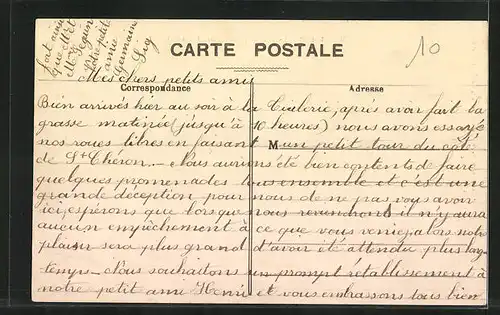 CARTE POSTALE
10
Correspondance
Adresse
M
Mes chers petits amis
Bien arrivés hier au soir à la Tuilerie, après avoir fait la
grasse matinée (jusqu'à 10 heures) nous avons essayé
nos roues libres en faisant un petit tour du côté
de St Chéron. – Nous aurions été bien contents de faire
quelques promenades tous ensemble et c'est une
grande déception pour nous de ne pas vous avoir
ici, espérons que lorsque nous reviendrons il n'y aura
aucun empêchement à ce que vous veniez, alors notre
plaisir sera plus grand d'avoir été attendu plus long-
temps. – Nous souhaitons un prompt rétablissement à
notre petit ami Henri et vous embrassons tous bien
fort ainsi
que Mr et
Votre petit
amie
Germaine